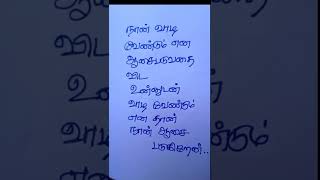 நான் வாடி
வேண்டும் என
ஆசைபடுவதை
விட
உன்னுடன்
வாடி வேண்டும்
என தான்
நான் ஆசை
படுகிறேன்..